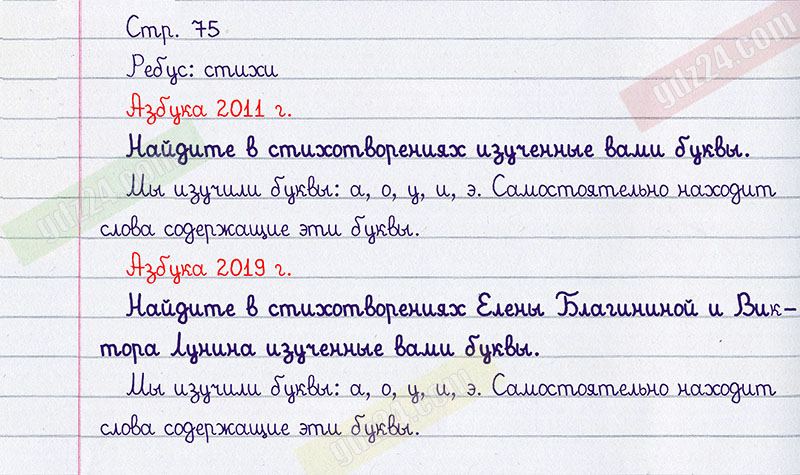 Стр. 75
Ребус: стихи
Азбука 2011 г.
Найдите в стихотворениях изученные вами буквы.
Мы изучили буквы: а, о, у, и, э. Самостоятельно находит
слова содержащие эти буквы.
Азбука 2019 г.
Найдите в стихотворениях Елены Благининой и Вик-
тора Лунина изученные вами буквы.
Мы изучили буквы: а, о, у, и, э. Самостоятельно находит
слова содержащие эти буквы.
gdz24.com
gdz24.com
gdz24.com